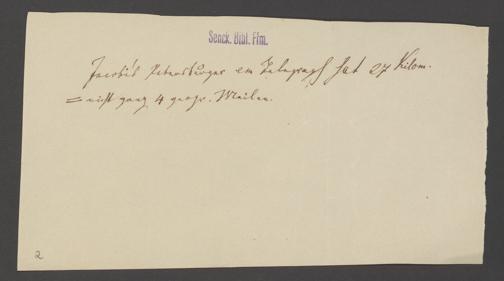 Senck. Bibl. Ffm.
Jacobi's Petersburger em Telegraph hat 27 Kilom.
= nicht ganz 4 geogr. Meilen.
2